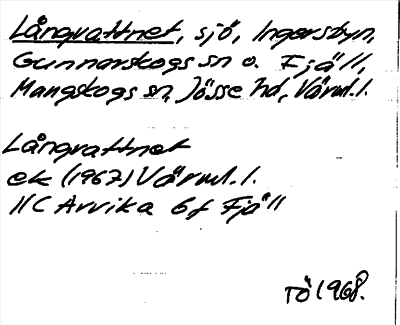 Långvattnet, sjö, Ingersbyn,
Gunnarskogs sn o. Fjäll,
Mangskogs sn, Jösse hd, Värml.l.
Långvattnet
ek (1967) Värml.l.
11C Arvika 6f Fjäll
TÖ 1968.